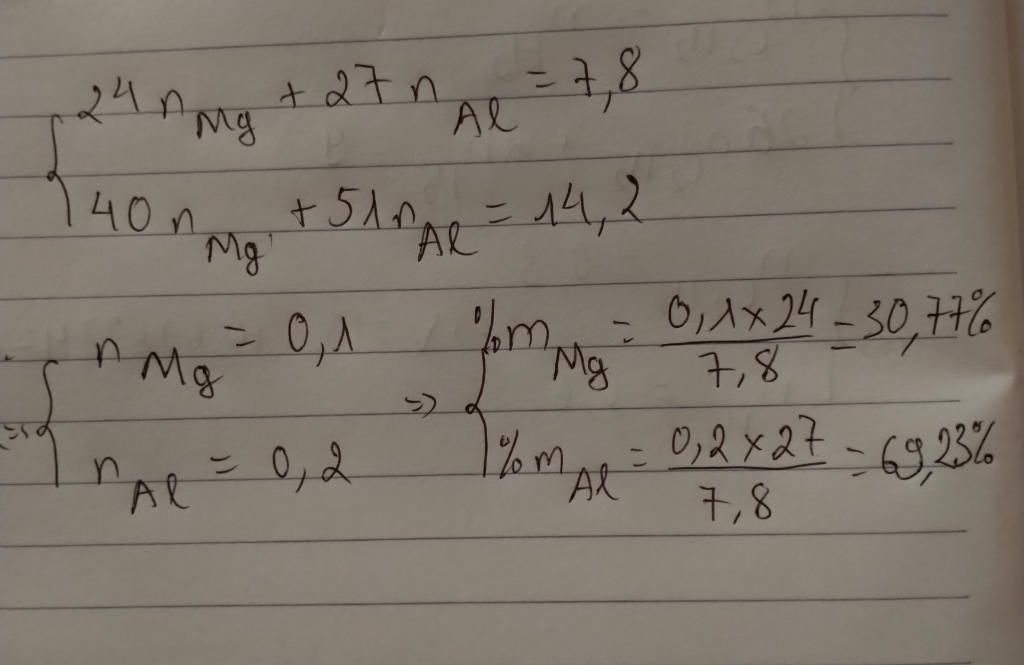 24 n Mg + 27 n Al = 7,8
40 n Mg + 51 n Al = 14,2
=> n Mg = 0,1 => %m Mg = 0,1 x 24 / 7,8 = 30,77%
n Al = 0,2 %m Al = 0,2 x 27 / 7,8 = 69,23%